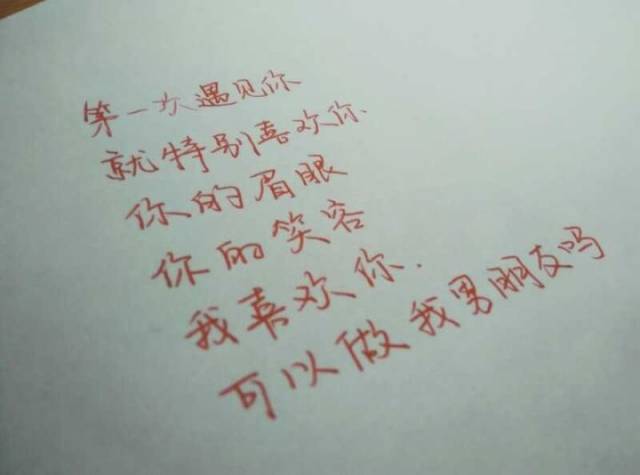 第一次遇见你
就特别喜欢你.
你的眉眼
你的笑容
我喜欢你.
可以做我男朋友吗